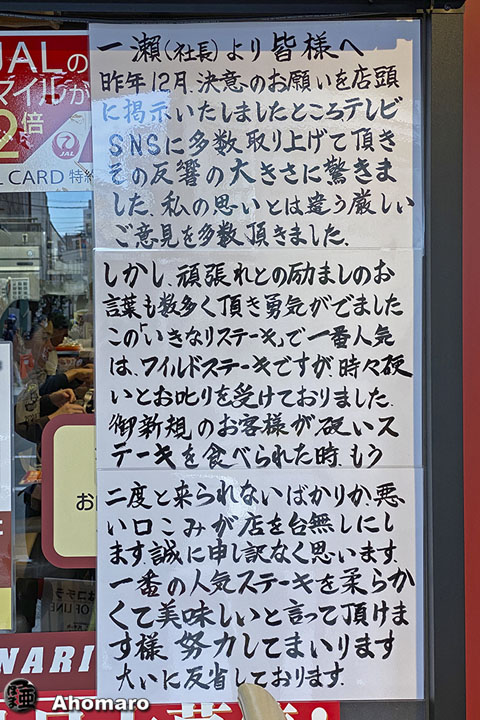 一瀬(社長)より皆様へ
昨年12月、決意のお願いを店頭
に掲示いたしましたところテレビ
SNSに多数取り上げて頂き
その反響の大きさに驚きま
した、私の思いとは違う厳しい
ご意見を多数頂きました、
しかし、頑張れとの励ましのお
言葉も数多く頂き勇気がでました
この「いきなりステーキ」で一番人気
は、ワイルドステーキですが、時々硬
いとお叱りを受けておりました、
御新規のお客様が硬いス
テーキを食べられた時、もう
二度と来られないばかりか、悪
い口こみが店を台無しにし
ます、誠に申し訳なく思います、
一番の人気ステーキを柔らか
くて美味しいと言って頂けま
す様、努力してまいります
大いに反省しております、
JALの
マイルが
2倍
JAL
L CARD 特約
お
はコチラ
OF LINE
NARI
Ahomaro